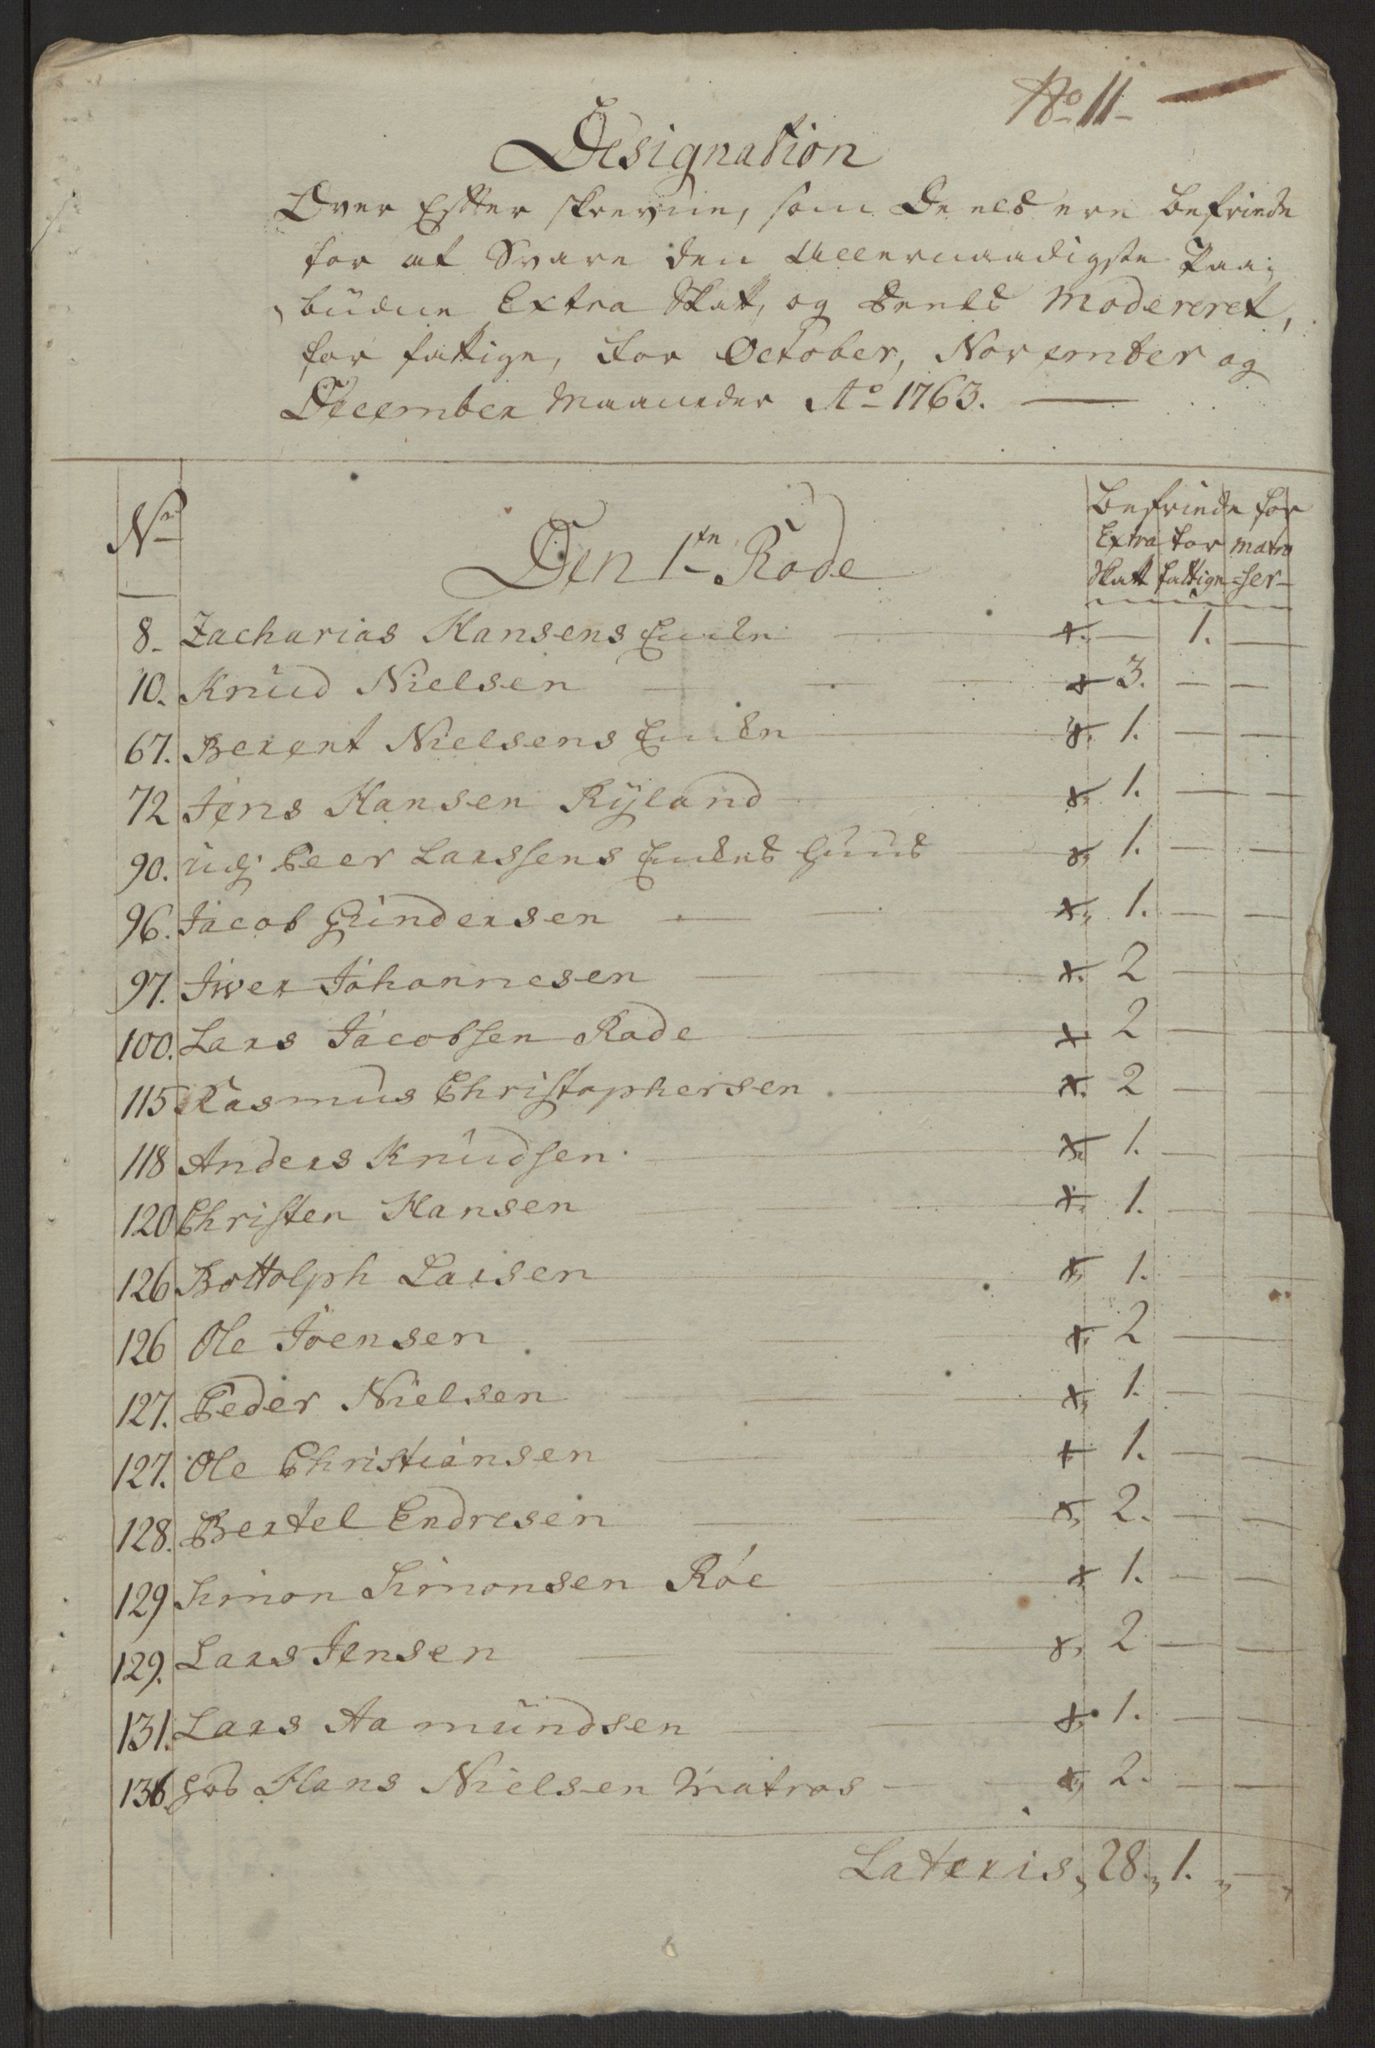 No 11
Designation
Over Efter skrevne, som Deels ere befriede
for at Svare den Allernaadigste Paa-
budne Extra Skatt, og Deels Modereret,
for fattige, for October, November og
December Maaneder Ao 1763.
No Den 1te Rode befriede for
Extra for matro
Skatt fattige ser
8. Zacharias Hansens Enke 1.
10. Knud Nielsen 3.
67. Berent Nielsens Enke 1.
72 Jens Hansen Ryland 1.
90. udj Peer Larssens Enkes Huus 1.
96. Jacob Gundersen 1.
97. Iwer Johannesen 2
100. Lars Jacobsen Rade 2
115 Rasmus Christophersen 2
118 Anders Knudsen 1.
120 Christen Hansen 1.
126 Bottolph Larsen 1.
126 Ole Joensen 2
127. Peder Nielsen 1.
127. Ole Christiansen 1.
128. Bertel Endresen 2.
129 Simon Simonsen Røe 1.
129. Lars Jensen 2
131. Lars Aamundsen 1.
136 hos Hans Nielsen Matros 2.
Lateris, 28, 1.